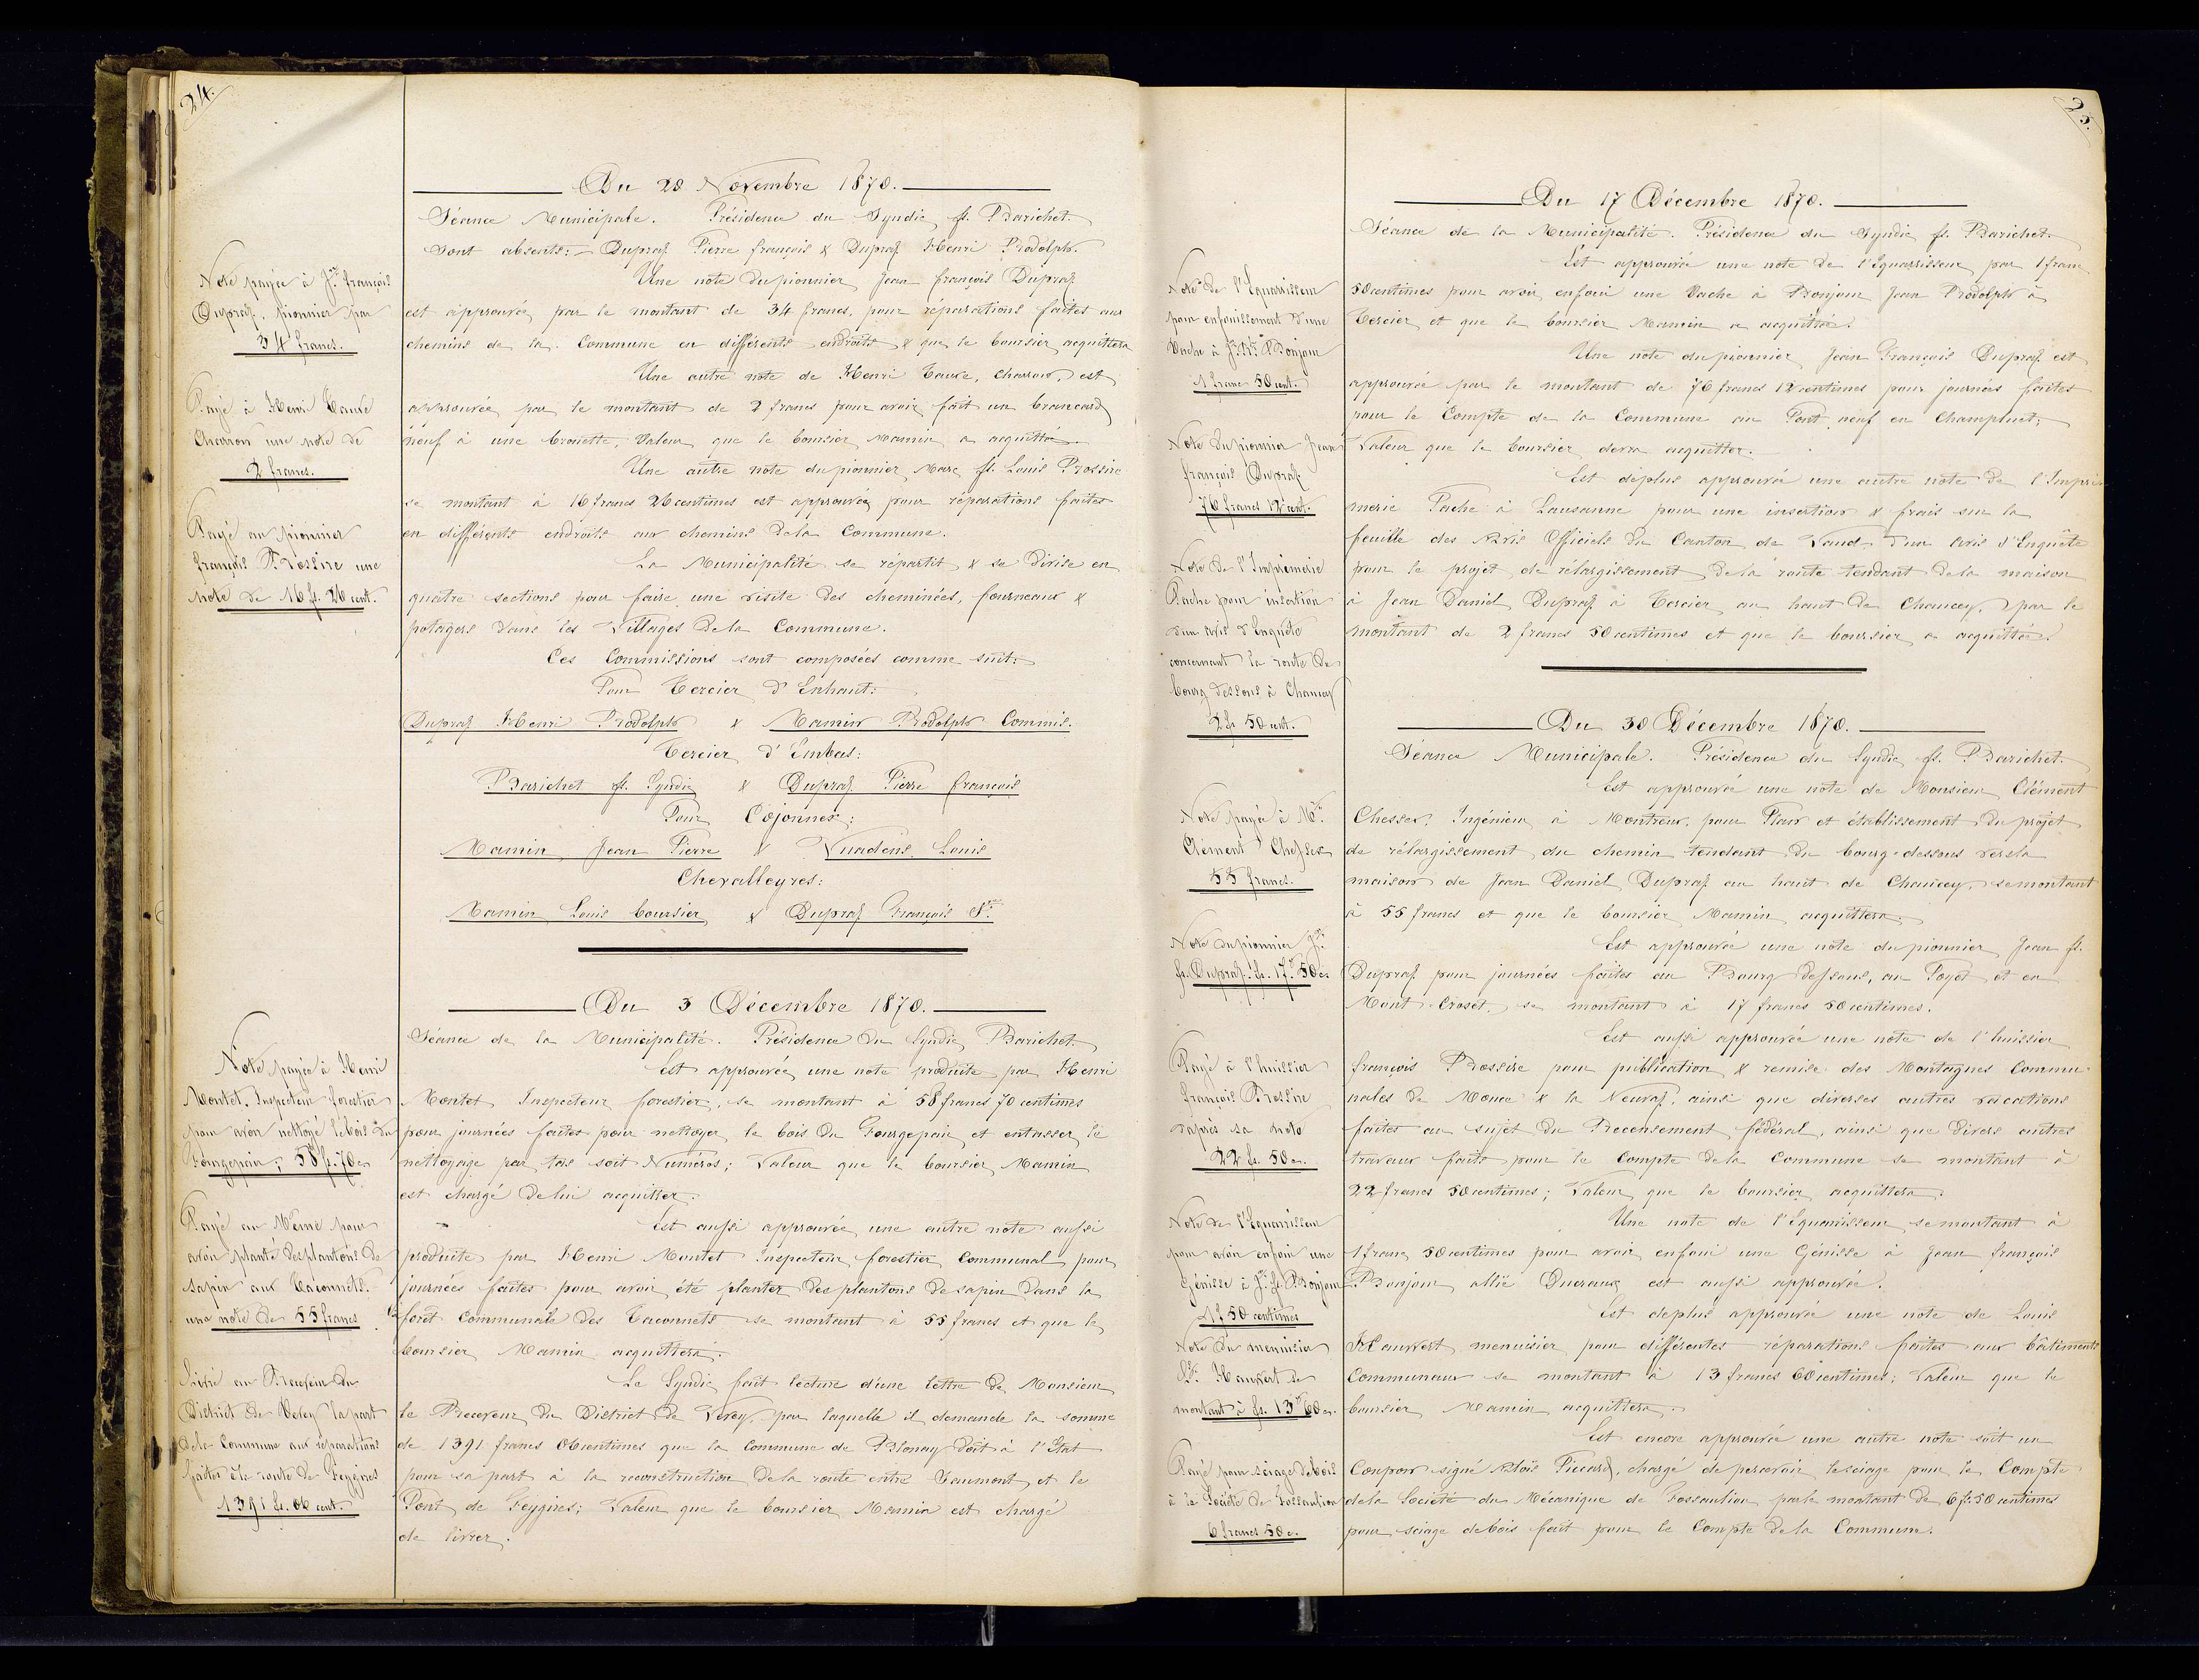 24.
Du 28 Novembre 1870.
Séance Municipale. Présidence du Syndic fs. Barichet.
Sont absents: Dupraz Pierre françois & Dupraz Henri Rodolph.
Note payée à Jn. françois
Dupraz, pionnier par
34 francs.
Une note du pionnier Jean françois Dupraz
est approuvée par le montant de 34 francs, pour réparations faites aux
chemins de la Commune en différents endroits & que le boursier acquittera
Payé à Henri
Charron une note de
2 francs.
Une autre note de Henri charron, est
approuvée par le montant de 2 francs pour avoir fait un brancard
neuf à une brouette, Valeur que le boursier Mamin a acquittée.
Payé au pionnier
françois Bossire une
note de 16 fs. 26 cent.
Une autre note du pionnier Marc fs. Louis Bossire
se montant à 16 francs 26 centimes est approuvée pour réparations faites
en différents endroits aux chemins de la Commune.
La Municipalité se répartit & se divise en
quatre sections pour faire une visite des cheminées, fourneaux &
potagers dans les Villages de la Commune.
Ces Commissions sont composées comme suit:
Pour Tercier d'Enhaut:
Dupraz Henri Rodolph & Mamin Rodolph Commis.
Tercier d'Embas:
Barichet fs. Syndic & Dupraz Pierre françois
Pour Cojonnex:
Mamin Jean Pierre & Vuadens Louis
Chevalleyres:
Mamin Louis boursier & Dupraz François
Du 3 Décembre 1870.
Séance de la Municipalité. Présidence du Syndic Barichet.
Note payée à Henri
Montet. Inspecteur forestier
pour avoir nettoyé le bois du
Fougepain; 58 fs. 70 c.
Est approuvée une note produite par Henri
Montet Inspecteur forestier, se montant à 58 francs 70 centimes
pour journées faites pour nettoyer le bois du Fourgepain et entasser le
nettoyage par tas soit Numéros; Valeur que le boursier Mamin
est chargé de lui acquitter.
Payé au Même pour
avoir planté des plantons de
sapin aux Taconnets.
une note de 55 francs
Est aussi approuvée une autre note aussi
produite par Henri Montet Inspecteur forestier Communal pour
journées faites pour avoir été planter des plantons de sapin dans la
forêt Communale des Taconnets se montant à 55 francs et que le
boursier Mamin acquittera.
Livré au Receveur du
District de Vevey la part
de la Commune aux réparations
faites à la route de Feygires
1391 fs. 06 cent.
Le Syndic fait lecture d'une lettre de Monsieur
le Receveur du District de Vevey, par laquelle il demande la somme
de 1391 francs 06 centimes que la Commune de Blonay doit à l'Etat
pour sa part à la reconstruction de la route entre Vaumont et le
Pont de Feygires; Valeur que le boursier Mamin est chargé
de livrer.
25.
Du 17 Décembre 1870.
Séance de la Municipalité. Présidence du Syndic fs. Barichet.
Note de l'Equarrisseur
pour enfouissement d'une
Vache à Bonjour
1 franc 50 cent.
Est approuvée une note de l'Equarrisseur par 1 franc
50 centimes pour avoir enfoui une Vache à Bonjour Jean Rodolph à
Tercier et que le boursier Mamin a acquittée.
Note du pionnier Jean
françois Dupraz
76 francs 12 cent.
Une note du pionnier Jean François Dupraz est
approuvée par le montant de 76 francs 12 centimes pour journées faites
pour le Compte de la Commune au Pont neuf en Champluet;
Valeur que le boursier devra acquitter.
Note de l'Imprimerie
Pache pour insertion
d'un avis d'Enquête
concernant la route de
bourg dessous à Chaucey
2 fs 50 cent.
Est déplus approuvé une autre note de l'Impri-
merie Pache à Lausanne pour une insertion & frais sur la
feuille des Avis Officiels du Canton de Vaud d'un avis d'Enquête
pour le projet de rélargissement de la route tendant de la maison
à Jean Daniel Dupraz à Tercier au haut de Chaucey, par le
montant de 2 francs 50 centimes et que le boursier a acquittée.
Du 30 Décembre 1870.
Séance Municipale. Présidence du Syndic fs. Barichet.
Note payé à Mr.
Clément Chessex
55 francs.
Est approuvé une note de Monsieur Clément
Chessex, Ingénieur à Montreux, pour Plan et établissement du projet
de rélargissement du chemin tendant du bourg-dessous vers la
maison de Jean Daniel Dupraz au haut de Chaucey, se montant
à 55 francs et que le boursier Mamin acquittera.
Note du pionnier Jn.
fs. Dupraz. fs. 17. 50 c.
Est approuvée une note du pionnier Jean fs.
Dupraz pour journées faites au Bourg dessous, au Poyet et en
Mont-Croset, se montant à 17 francs 50 centimes.
Payé à l'huissier
françois Bossire
d'après sa note
22 fs. 50 c.
Est aussi approuvée une note de l'huissier
françois Bossire pour publication & remise des Montagnes Commu-
nales de & la Neuvaz, ainsi que diverses autres vacations
faites au sujet du Recensement fédéral, ainsi que divers autres
travaux faits pour le Compte de la Commune se montant à
22 francs 50 centimes; Valeur que le boursier acquittera.
Note de l'Equarrisseur
pour avoir enfoui une
Génisse à Jn. fs. Bonjour
1 f 50 centimes
Une note de l'Equarrisseur se montant à
1 franc 50 centimes pour avoir enfoui une Génisse à Jean françois
Bonjour allié Ducraux est aussi approuvée.
Note du menuisier
Ls. Hauvert se
montant à fs. 13 60 c.
Est deplus approuvé une note de Louis
Hauvert menuisier pour différentes réparations faites aux bâtiments
Communaux se montant à 13 francs 60 centimes; Valeur que le
boursier Mamin acquittera.
Payé pour sciage de bois
à la Société de Fossaulion
6 francs 50 c.
Est encore approuvée une autre note soit un
Coupon signé Aloïs Piccard, chargé de percevoir le sciage pour le Compte
de la Société du Mécanique de Fossaulion par le montant de 6 fs. 50 centimes
pour sciage de bois fait pour le Compte de la Commune.